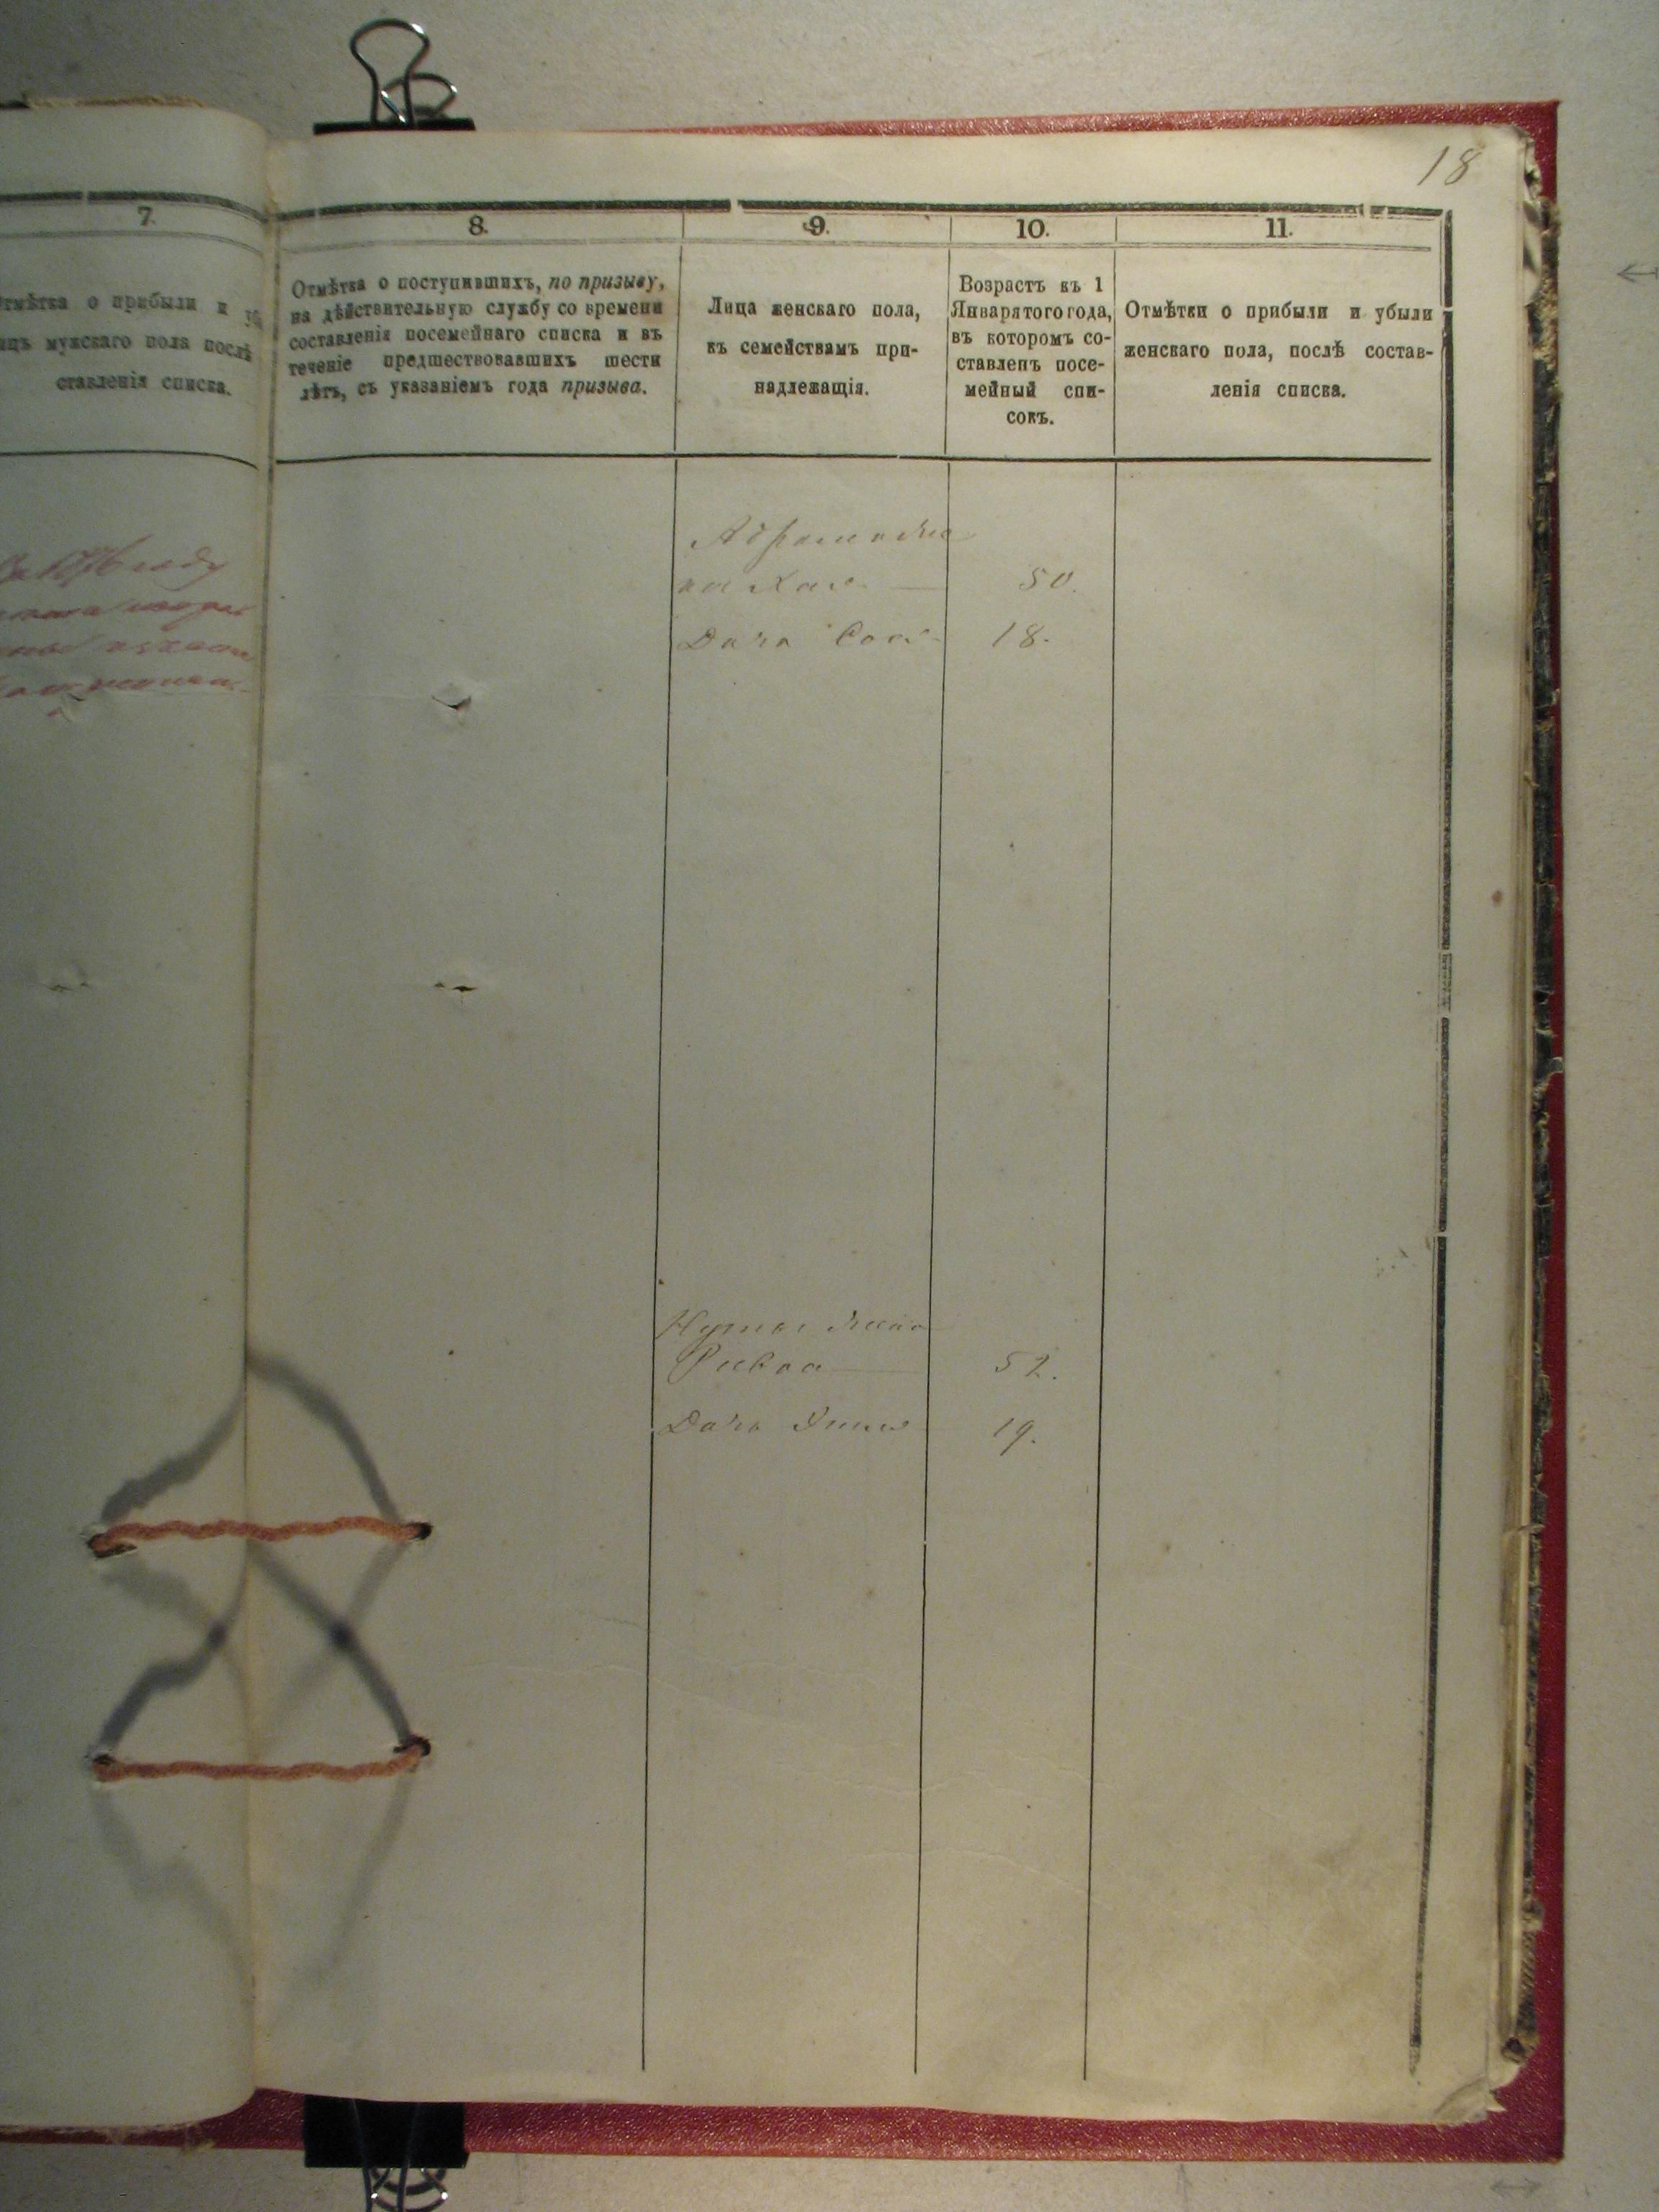 18
7.
Отмѣтка о прибыли и уб
лицъ мужскаго пола послѣ
ставленія списка.
8.
Отмѣтка о поступившихъ, по призыву,
на дѣйствительную службу со времени
составленія посемейнаго списка и въ
теченіе предшествовавшихъ шести
лѣтъ, съ указаніемъ года призыва.
9.
Лица женскаго пола,
къ семействамъ при-
надлежащія.
10.
Возрастъ къ 1
Января того года,
въ которомъ со-
ставленъ посе-
мейный спи-
сокъ.
11.
Отмѣтки о прибыли и убыли
женскаго пола, послѣ состав-
ленія списка.
Абрама же
на Хая 50.
Дочь 18.
жена
Ривка 52.
Дочь 19.